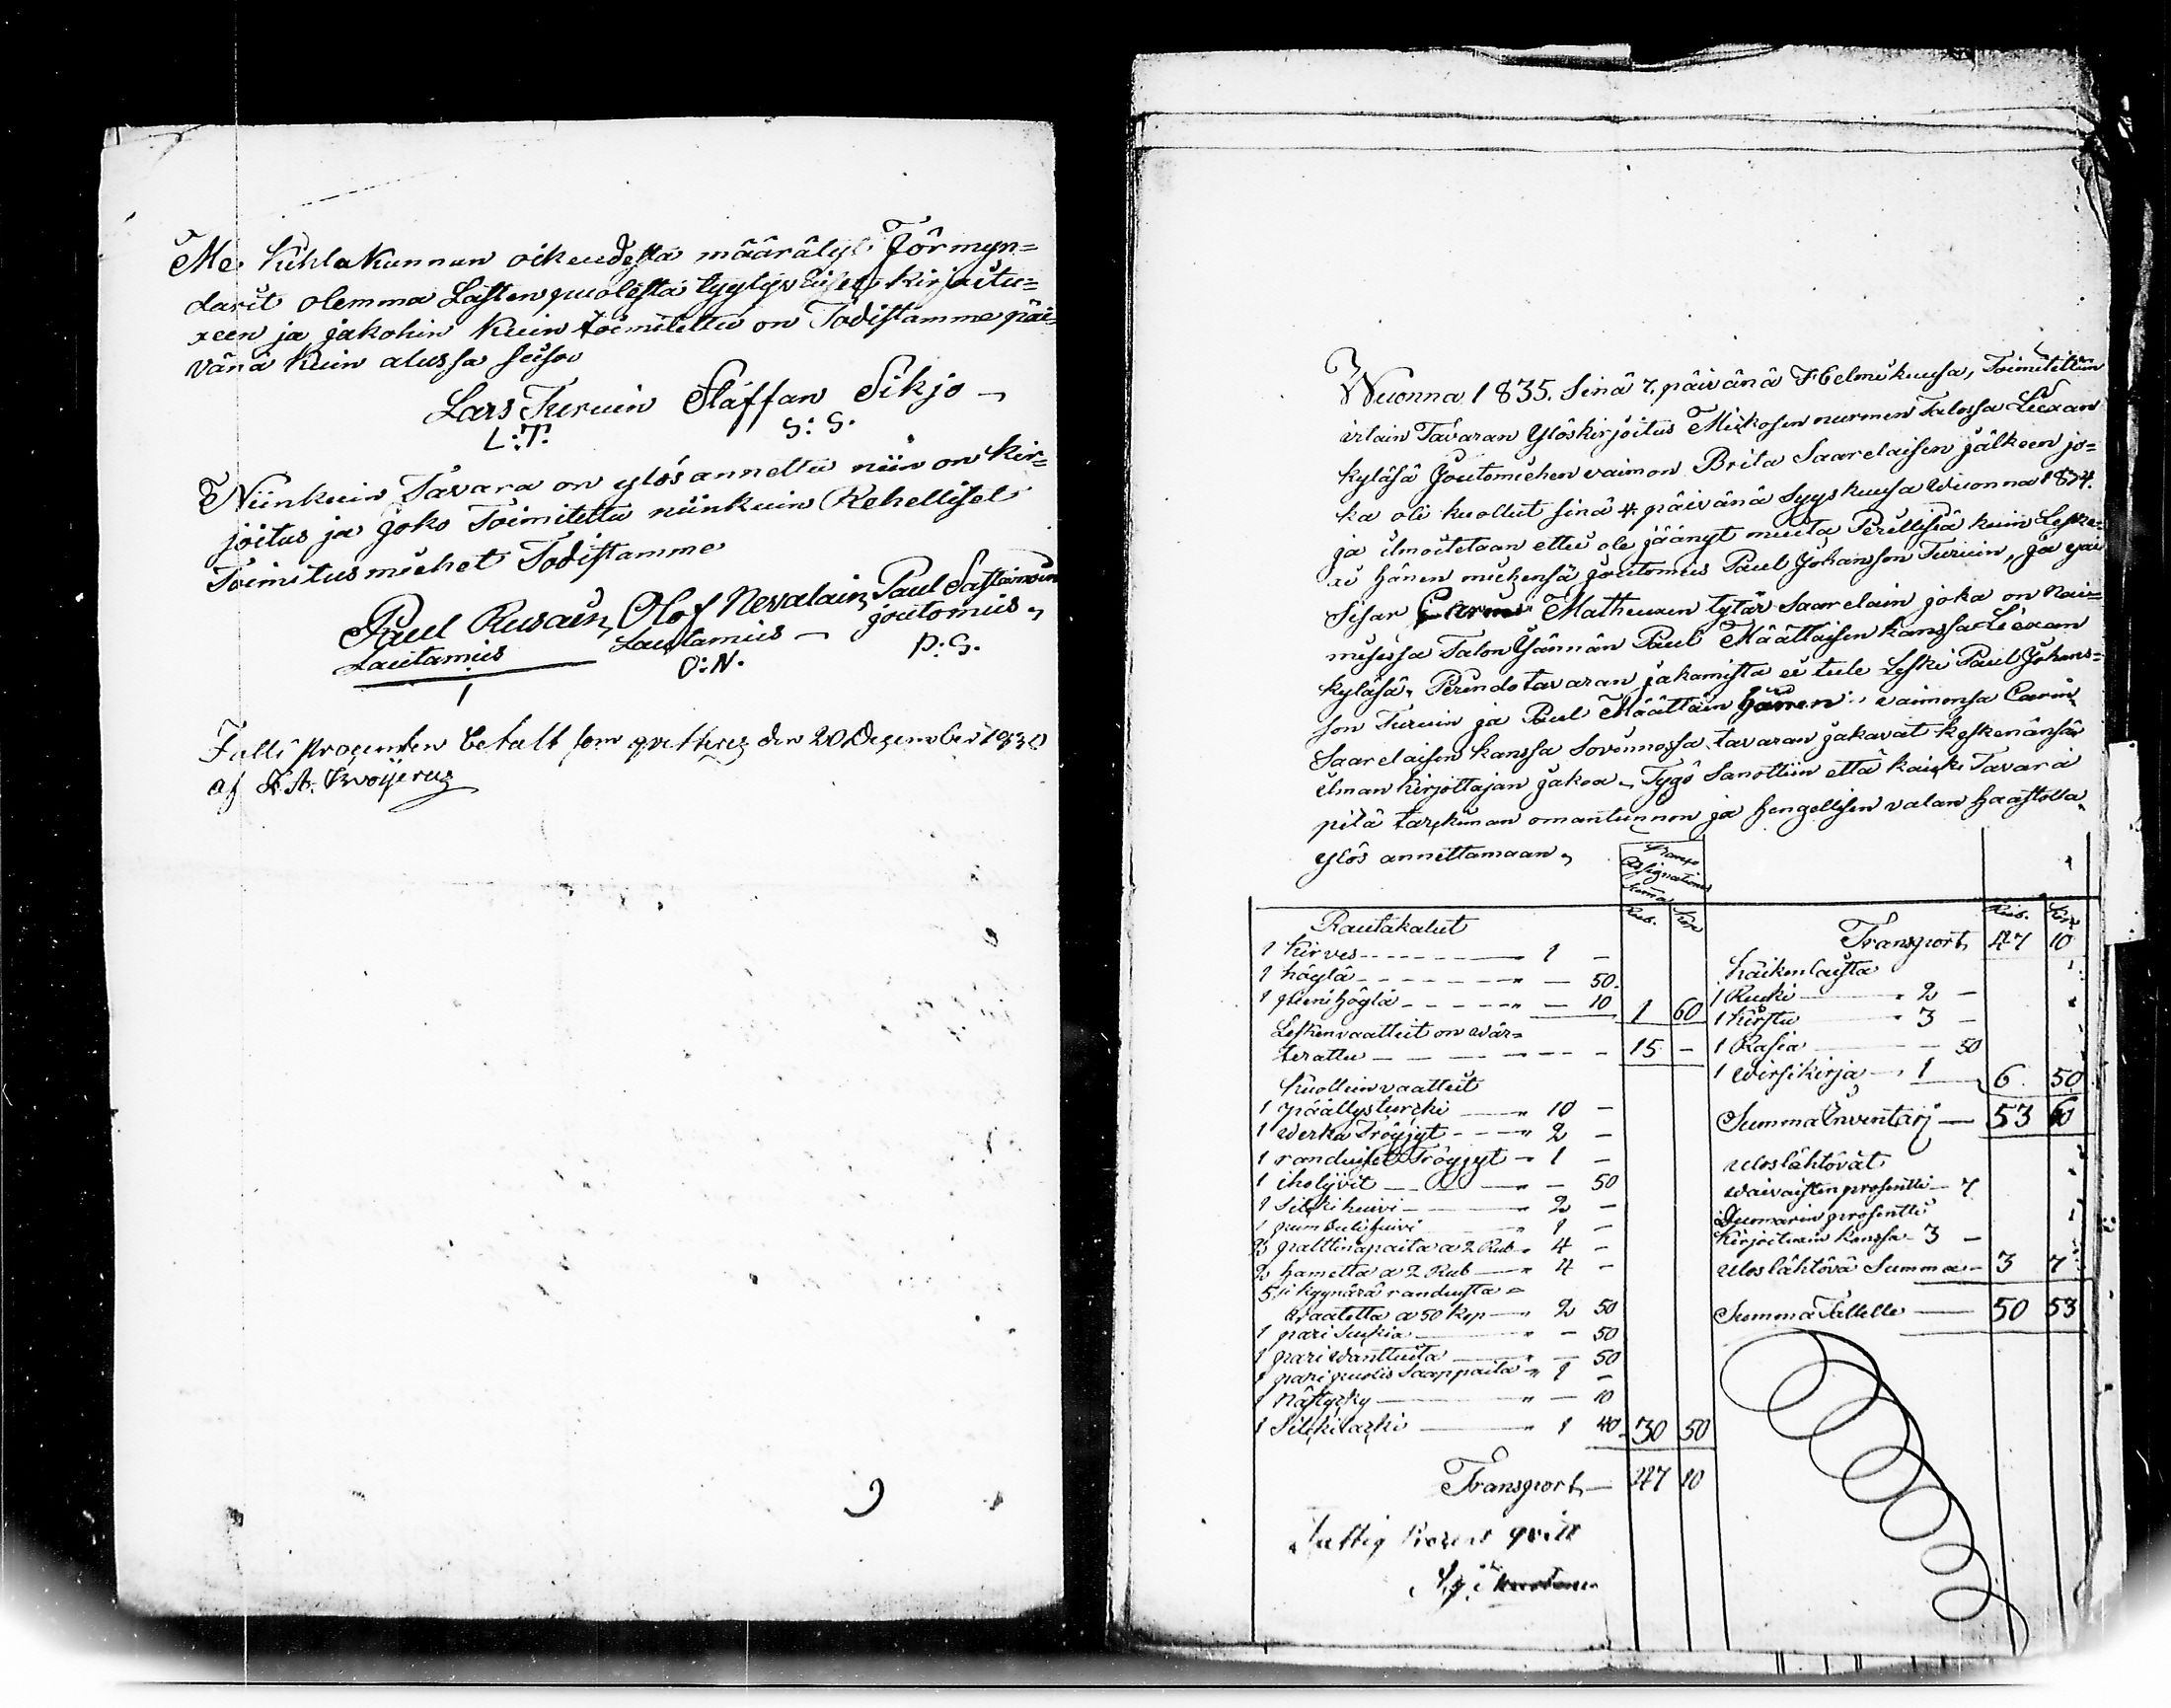 Me Kihlakunnan oikeudesta määrätyt Förmyn=
darit olemma Lasten puolesta tyytyväiset kirjoitu=
xeen ja jakohin kuin toimitettu on Todistamme päi=
vänä kuin alussa seisoo
Lars Turuin Staffan Sikjo -
L:T: S: S.
Niinkuin Tavara on ylös annettu niin on kir=
joitus ja joko Toimitettu niinkuin Rehelliset
Toimitusmiehet Todistamme
Paul Rusain, Olof Nevalain, Paul Sastamoin
Lautamies Lautamies - joutomies,
O:N. P:S.
Fatti procenten betalt som qvitteras den 20 December 183
af
Wuonna 1835. Sinä 7. päivänä Helmikuusa, Toimitettiin
irtain Tavaran Ylöskirjoitus Mickosen nurmen Talossa Liexan
kyläsä Joutomiehen vaimon Brita Saarelaisen jälkeen jo=
ka oli kuollut sinä 4. päivänä Syyskuusa Wuonna 1834.
ja ilmoitetaan ettei ole jäänyt muita Perillisiä kuin Leske=
xi hänen miehensä joutomies Paul Johansson Turuin, ja yxi
Sisar Mathewxen tytär Saarelain joka on nai=
misessa Talon Isännän Paul Määttäisen kanssa Liexan
kyläsä, Perindotavaran jakamista ei tule Leski Paul Johans=
son Turuin ja Paul Määttäin hänen vaimonsa Carin
Saarelaisen kanssa Sovinnossa tavaran jakavat keskenänsä
ilman kirjottajan jakoa - Tygö Sanottiin että kaicki Tavara
pitä tarckiman omantunnon ja hengellisen valan haastolla
ylös annettamaan,
Banco
Assignations
Summa
Rub. Kop
Rautakalut
1 kirves - - - - " 1 -
1 höylä - - - - " - 50.
1 pieni höylä - - - - " - 10 1 60
Leskenvaatteit on wär=
terattu - - - - 15 -
Kuolluin vaatteit
1 päällysturcki " 10 -
1 werka Tröyjyt - - " 2 -
1 randuiset Tröyjyt - 1 -
1 iholijvit " - 50
1 Silcki huivi " 2 -
1 pumbulihuivi " 1 -
2 palttinapaita a 2 Rub " 4 -
2 hametta a 2 Rub " 4 -
5 kyynärä randuista
waatetta a 50 Kop " 2 50
1 pari Sukia " - 50
1 pari wanttuita " - 50
1 pari puolis Saappaita " 1 -
1 Nästycky " - 10
1 Silckilacki " 1 40 30 50
Transport - 47 10
Fattig Procent qvitt
Rub. Kop
Transport, 47 10
Kaikenlaista
1 Rucki " 2 -
1 kirstu " 3 -
1 Rasia - 50
1 wirsikirja " 1 6. 50
Summa Inventarj - 53 60
Uloslähtövät
waivaisten prosentti - 7
Duomarin prosentti
kirjoituxen kanssa - 3 -
Uloslähtövä Summa - 3 7
Summa Tallelle 50 53